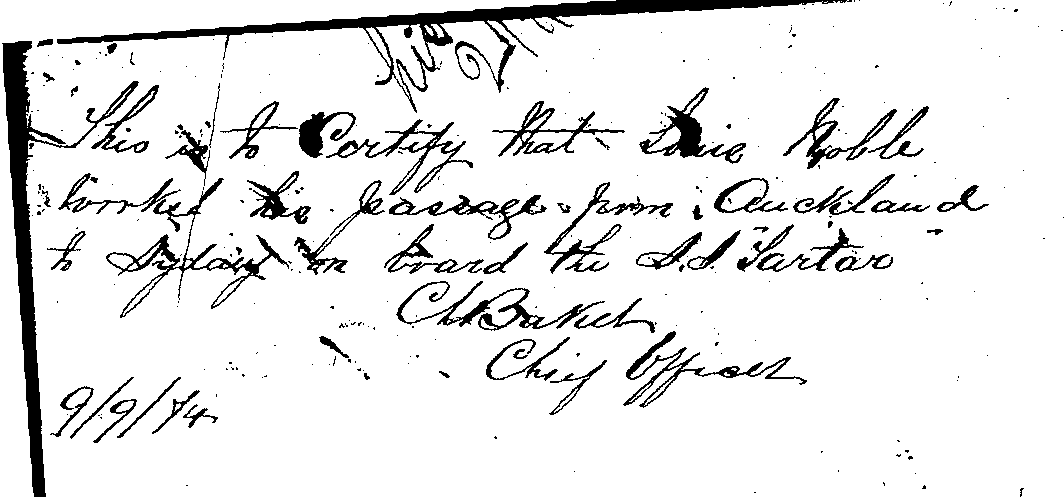 This is to Certify that Louis Noble
worked his passage from Auckland
to Sydney on board the S.S "Tartar"
Ch Baker
Chief Officer
9/9/74